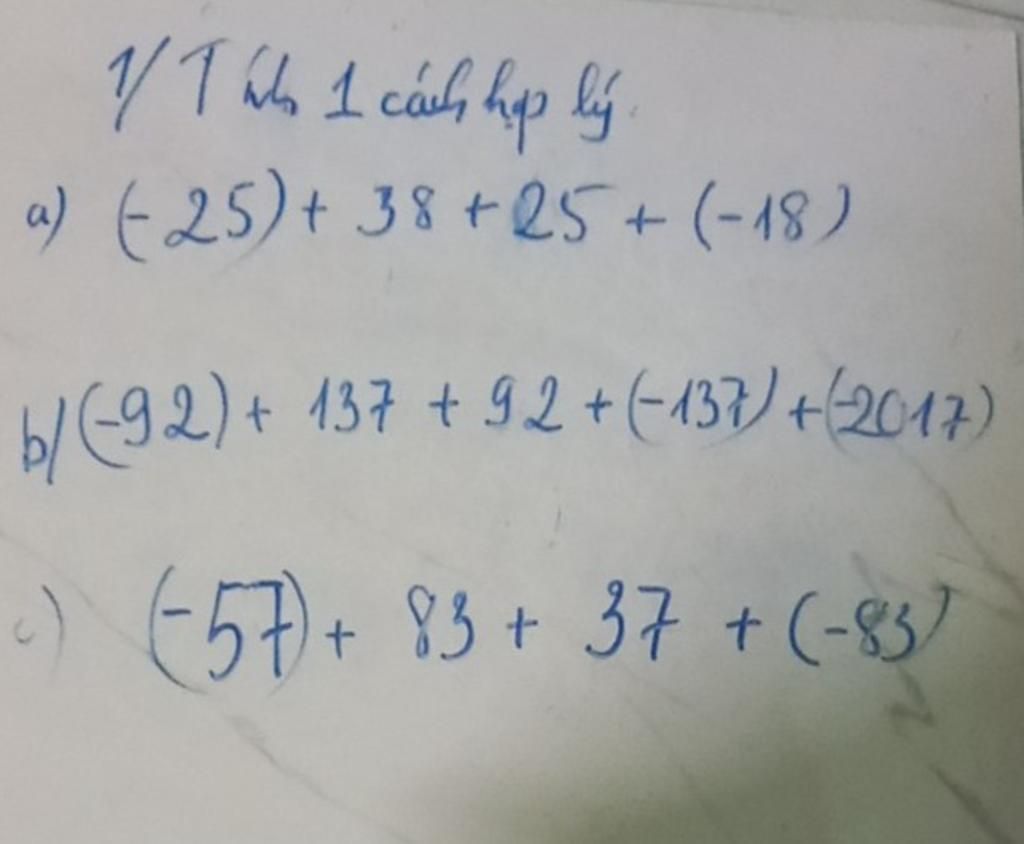 1/ Tính 1 cách hợp lý.
a) (-25) + 38 + 25 + (-18)
b/ (-92) + 137 + 92 + (-137) + (-2017)
c) (-57) + 83 + 37 + (-83)